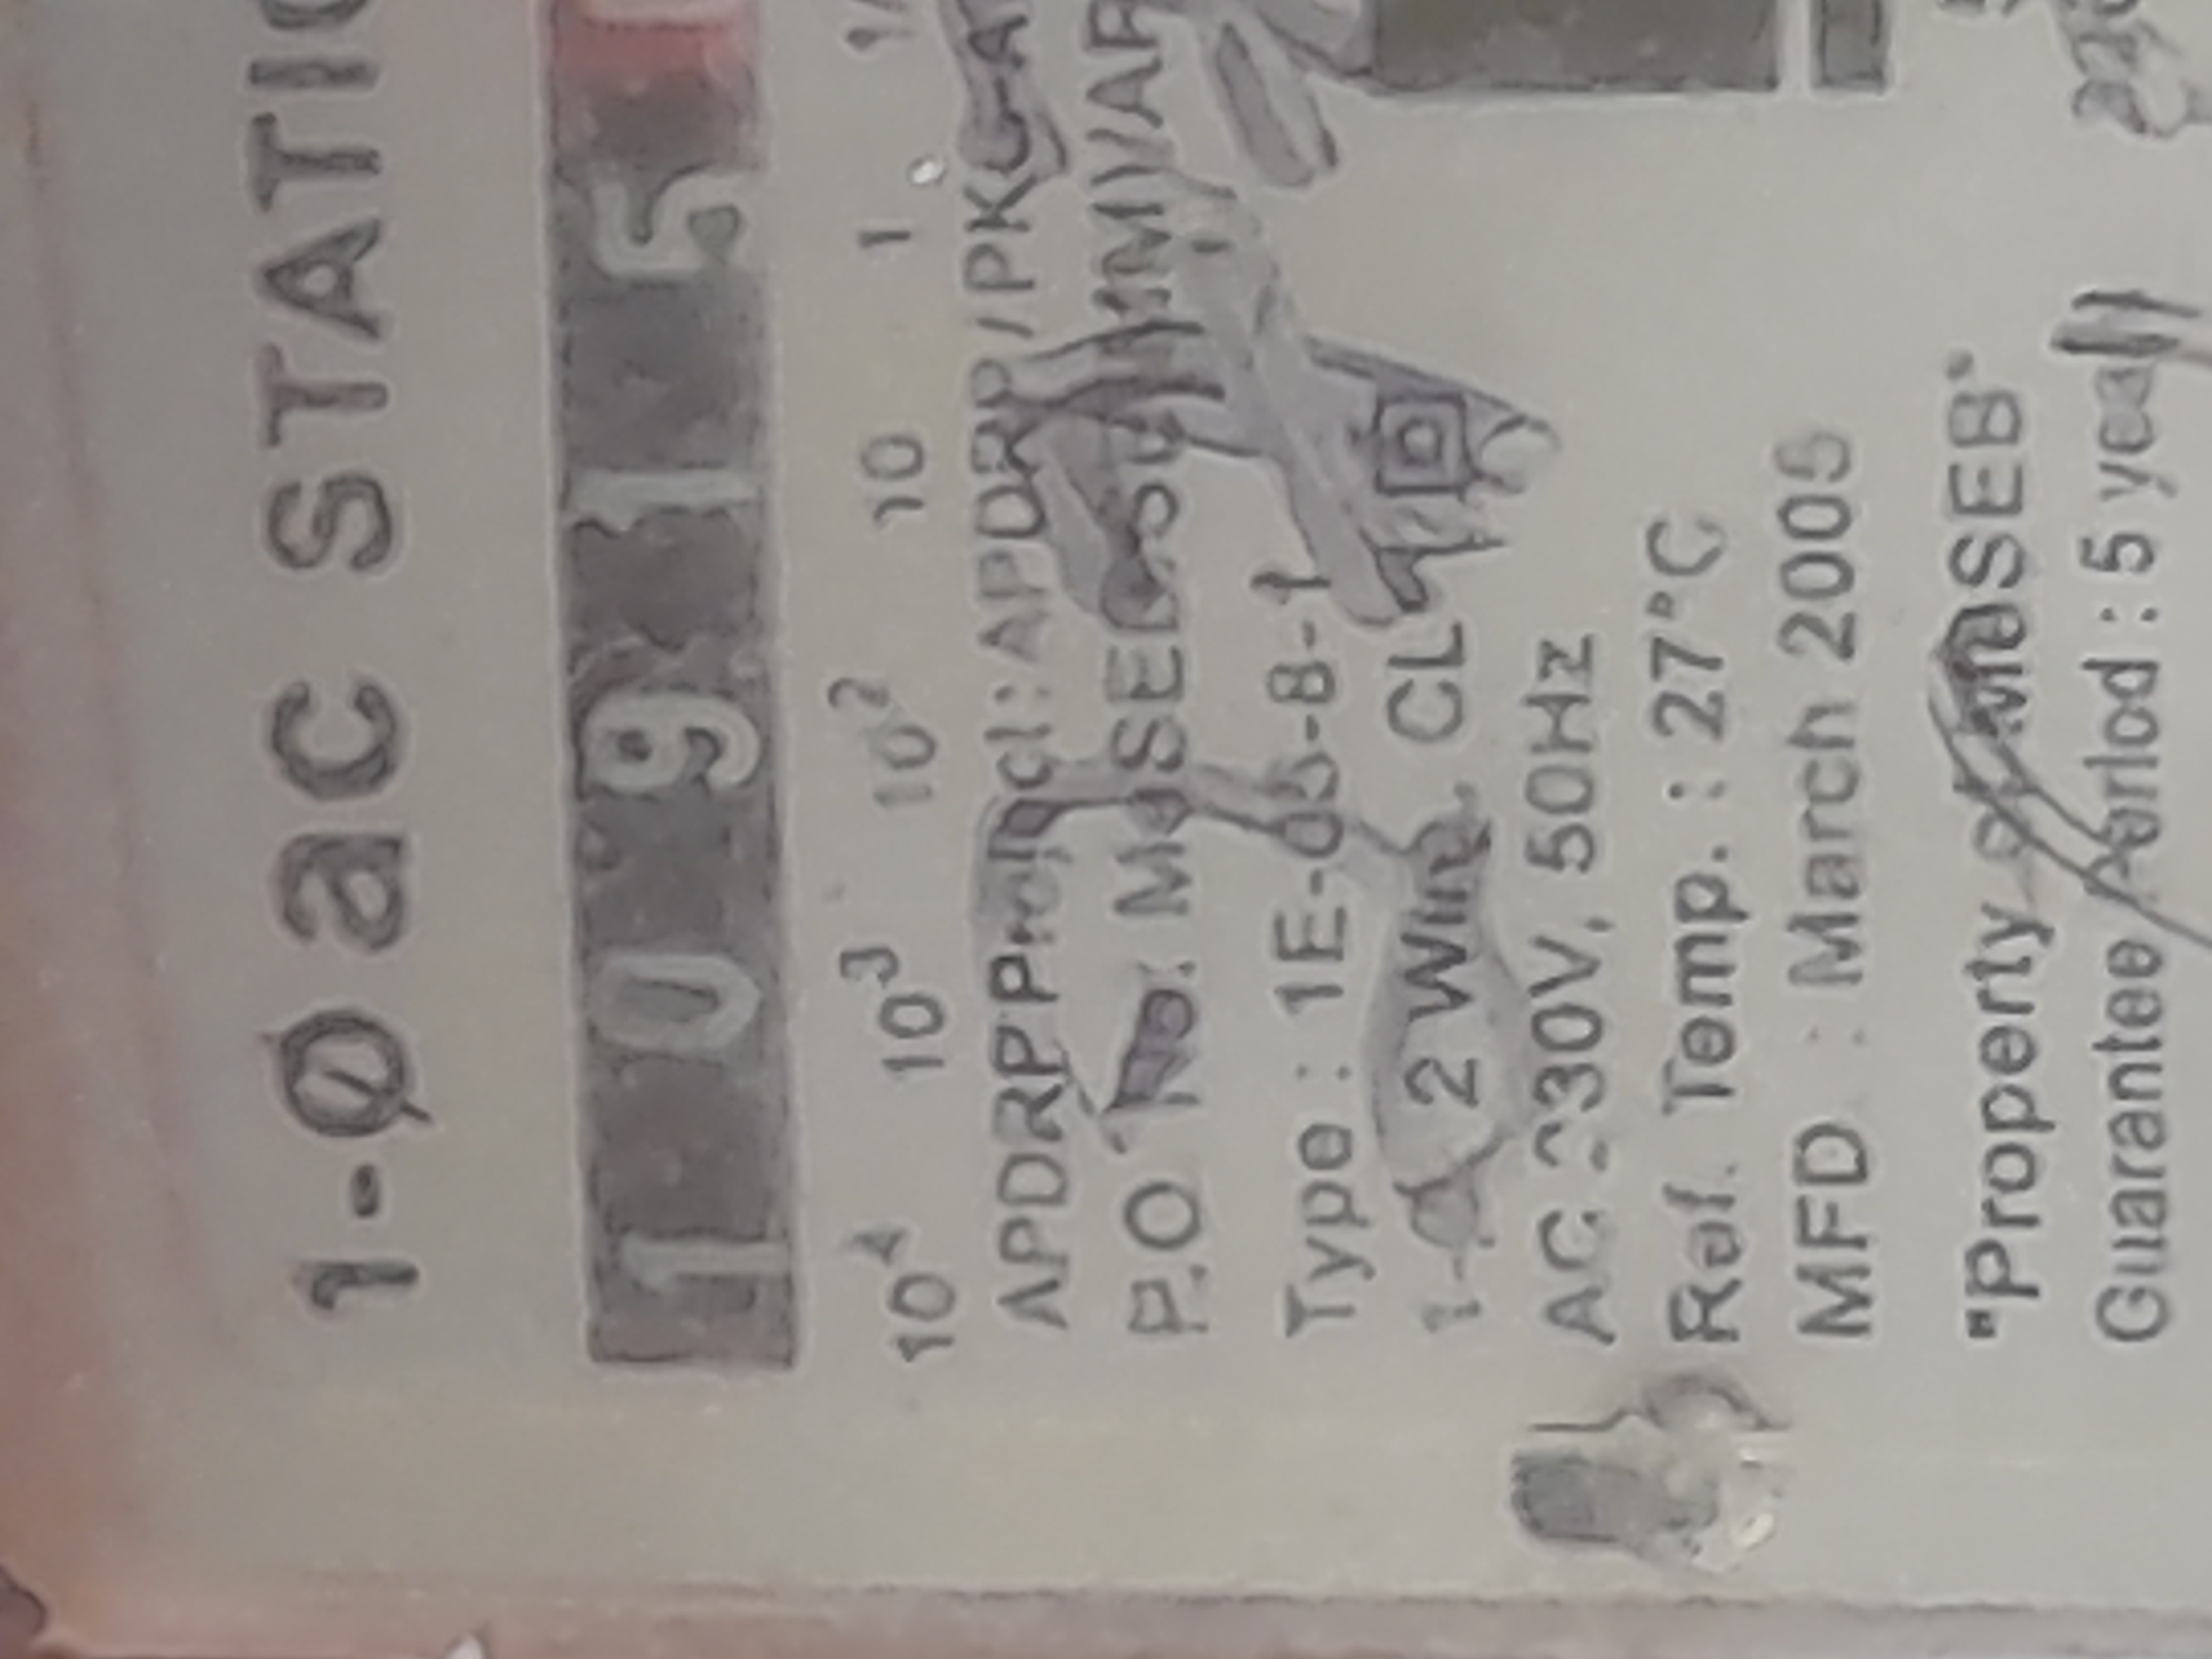 1-Ø ac STATIC
1 0 9 1 5
10⁴ 10³ 10² 10 1 1/
APDRP Project : APDRP / PKG-A
P.O No: MSEDSO
Type : 1E-05-B-1
1-Ø 2 Wire, CL
AC 230V, 50Hz
Ref. Temp. : 27°C
MFD : March 2005
"Property of MSEB"
Guarantee Period : 5 year